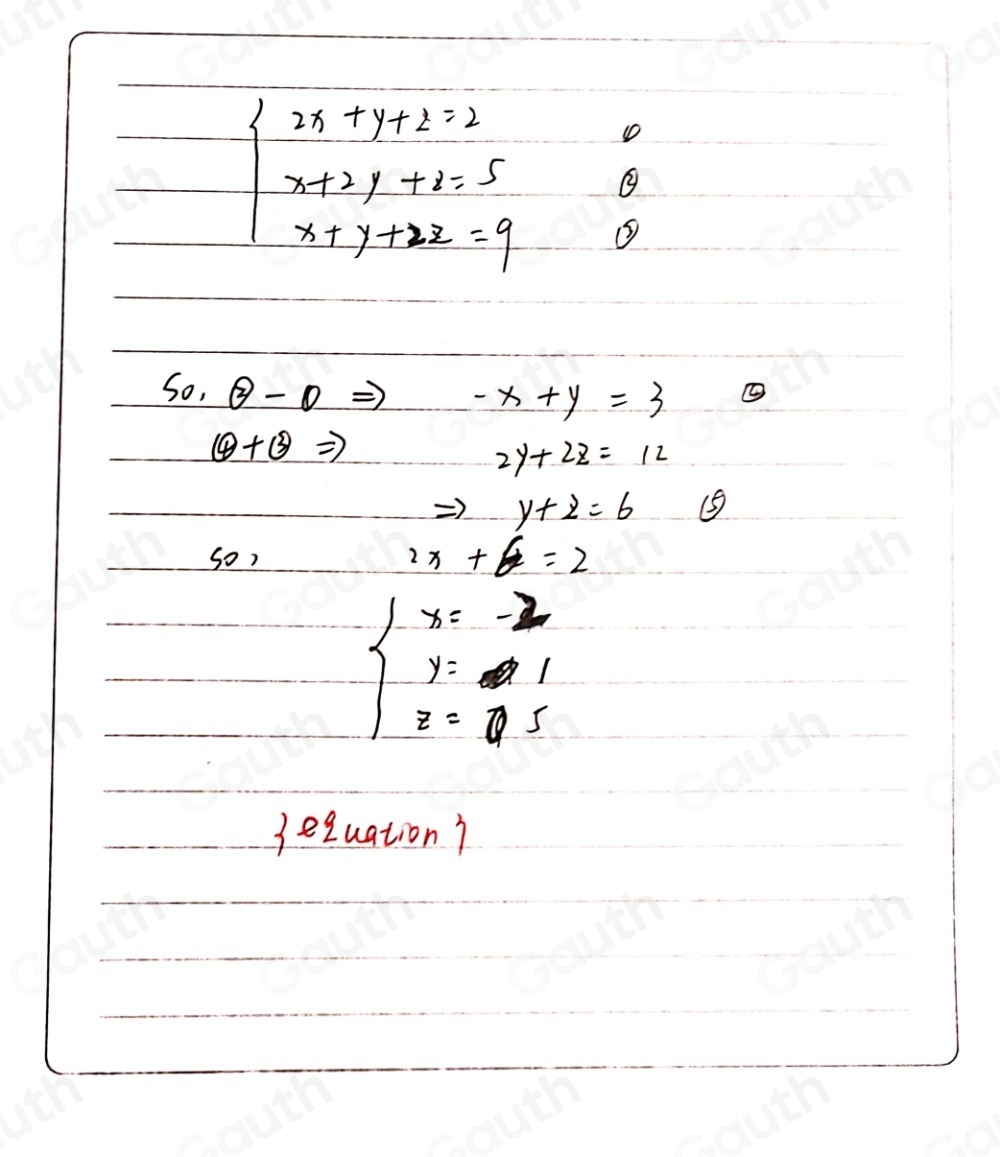 { 2x + y + z = 2 ①
x + 2y + z = 5 ②
x + y + 2z = 9 ③
So, ② - ① ⇒ -x + y = 3 ④
④ + ③ ⇒ 2y + 2z = 12
⇒ y + z = 6 ⑤
so, 2x + 6 = 2
{ x = -2
y = 1
z = 5
{equation}
Gauth